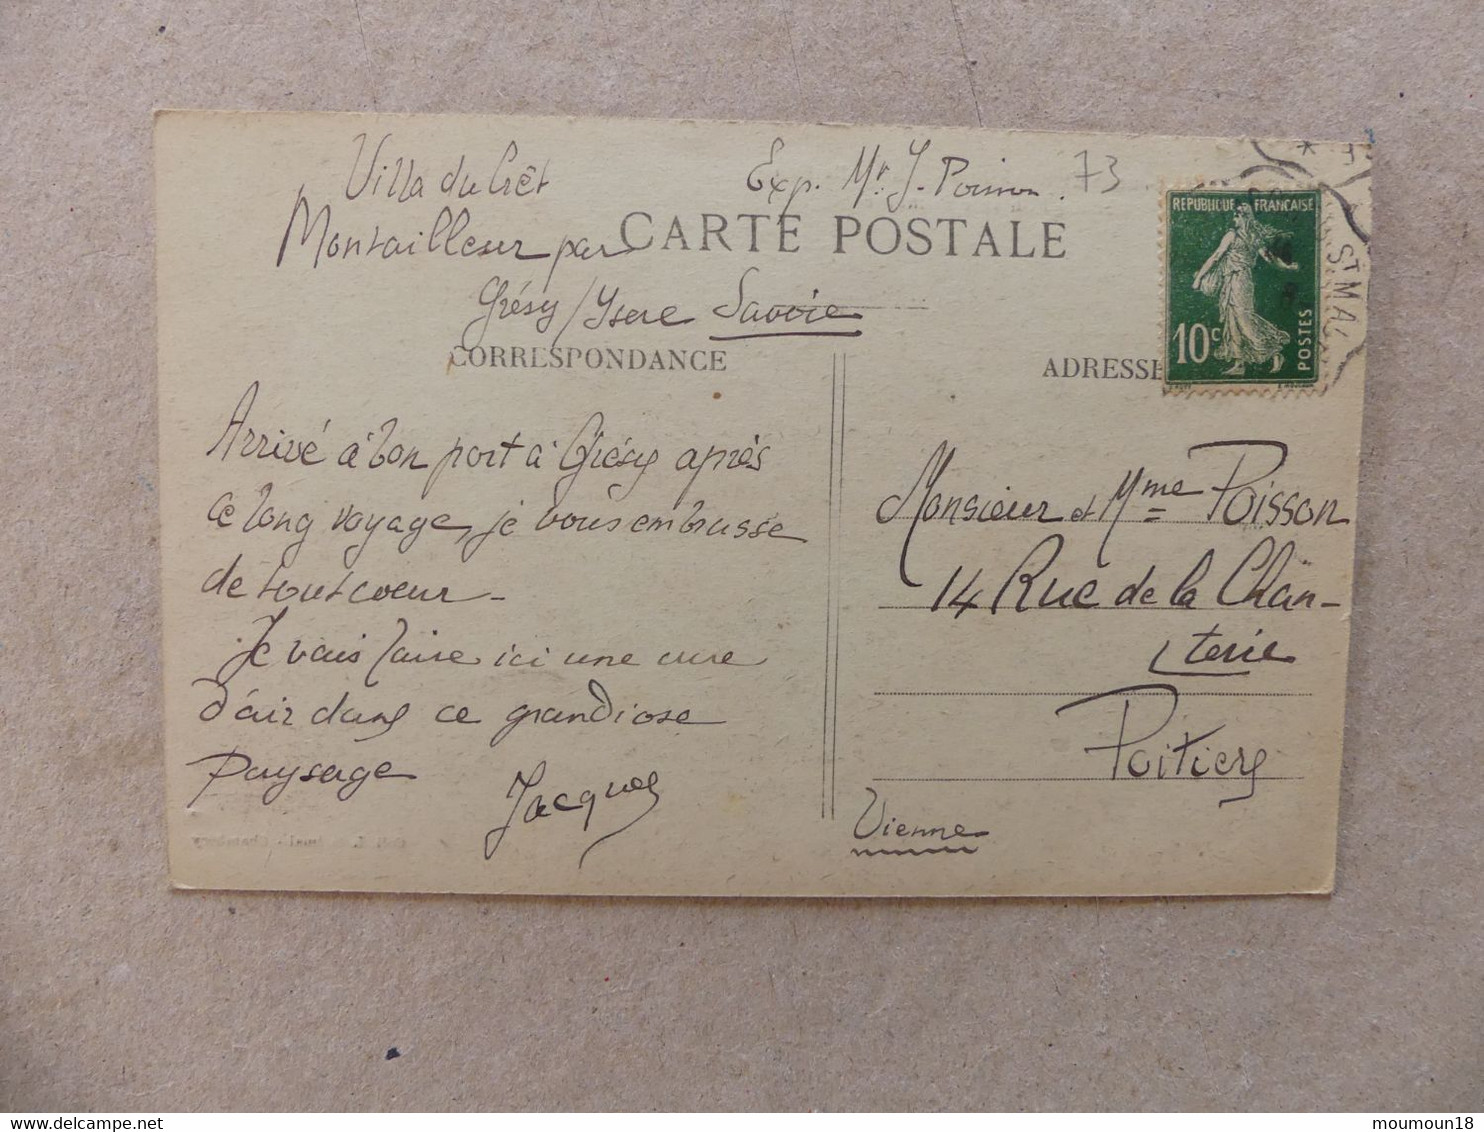 Villa du Crêt
Montailleur par
Grésy/Ysere Savoie
Exp. Mr. J. Poisson.
73
CARTE POSTALE
CORRESPONDANCE
ADRESSE
REPUBLIQUE FRANÇAISE
10c
POSTES
St MA
Arrivé à bon port à Grésy après
ce long voyage, je vous embrasse
de tout coeur -
Je vais faire ici une cure
d'air dans ce grandiose
paysage
Jacques
Monsieur et Mme Poisson
14 Rue de la Chan-
terie
Poitiers
Vienne
moumoun18